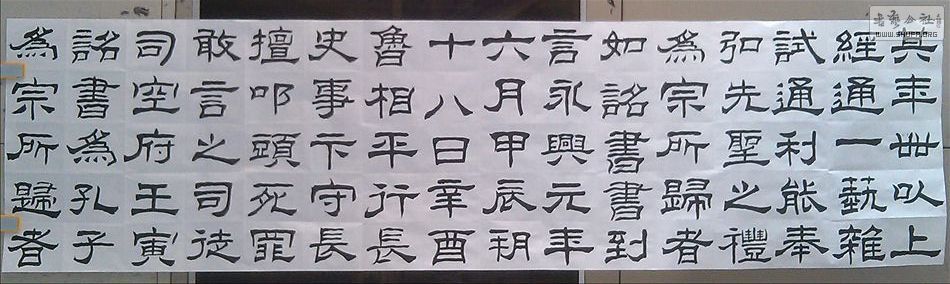 其年卌以上
經通一藝雜
試通利能奉
弘先聖之禮
為宗所歸者
如詔書書到
言永興元年
六月甲辰朔
十八日辛酉
魯相平行長
史事卞守長
擅叩頭死罪
敢言之司徒
司空府壬寅
詔書為孔子
為宗所歸者
书艺公社
WWW.SHUFA.ORG